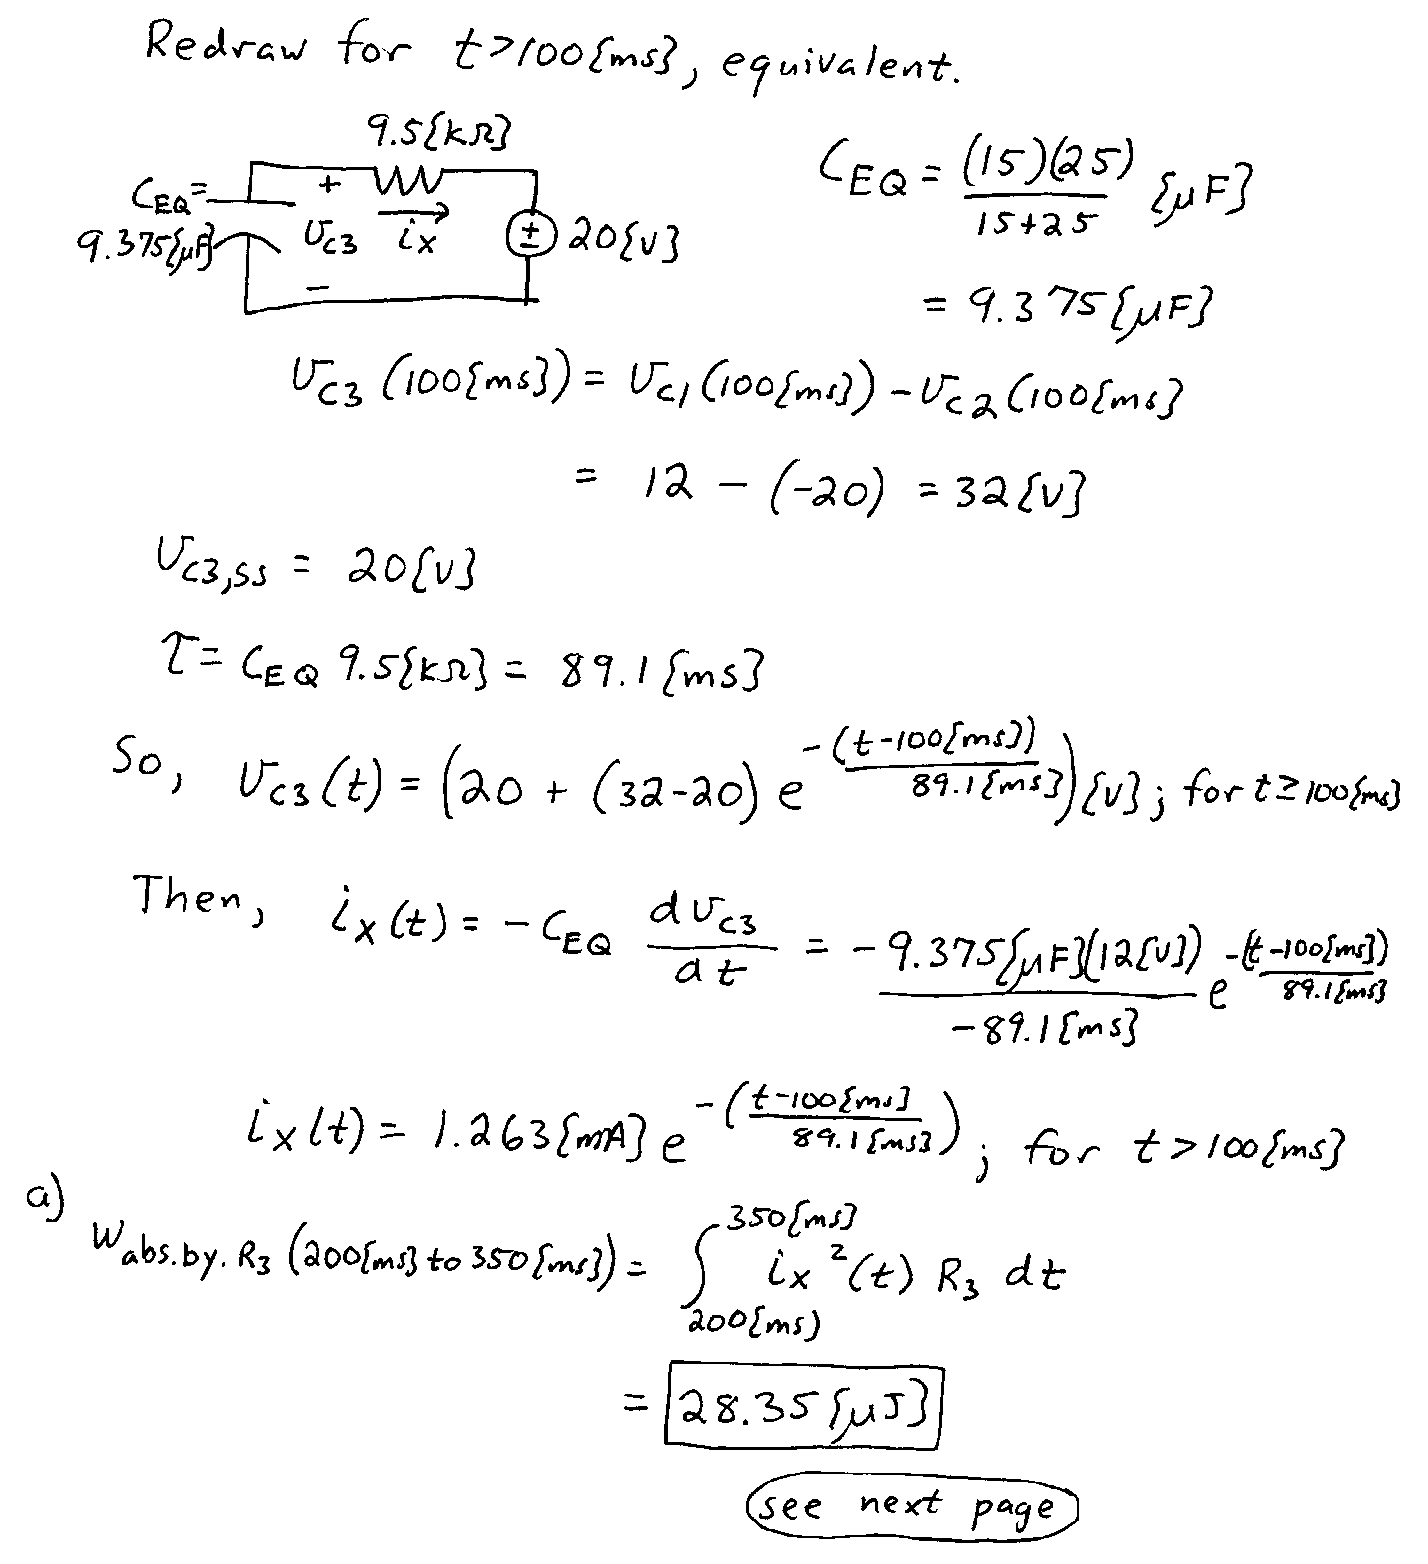 Redraw for t>100{ms}, equivalent.
9.5{kΩ}
C_EQ = 9.375{μF}
+ v_C3 -
i_x
± 20{V}
C_EQ = (15)(25) / 15+25 {μF}
= 9.375{μF}
v_C3 (100{ms}) = v_C1 (100{ms}) - v_C2 (100{ms}
= 12 - (-20) = 32{V}
v_C3,SS = 20{V}
τ = C_EQ 9.5{kΩ} = 89.1{ms}
So, v_C3(t) = (20 + (32-20) e^-(t-100{ms})/89.1{ms}) {V}; for t≥100{ms}
Then, i_x(t) = -C_EQ dv_C3/dt = -9.375{μF}(12{V})/-89.1{ms} e^-(t-100{ms})/89.1{ms}
i_x(t) = 1.263{mA} e^-(t-100{ms}/89.1{ms}); for t>100{ms}
a)
W_abs.by.R3 (200{ms} to 350{ms}) = ∫_200{ms)^350{ms} i_x²(t) R_3 dt
= 28.35{μJ}
see next page